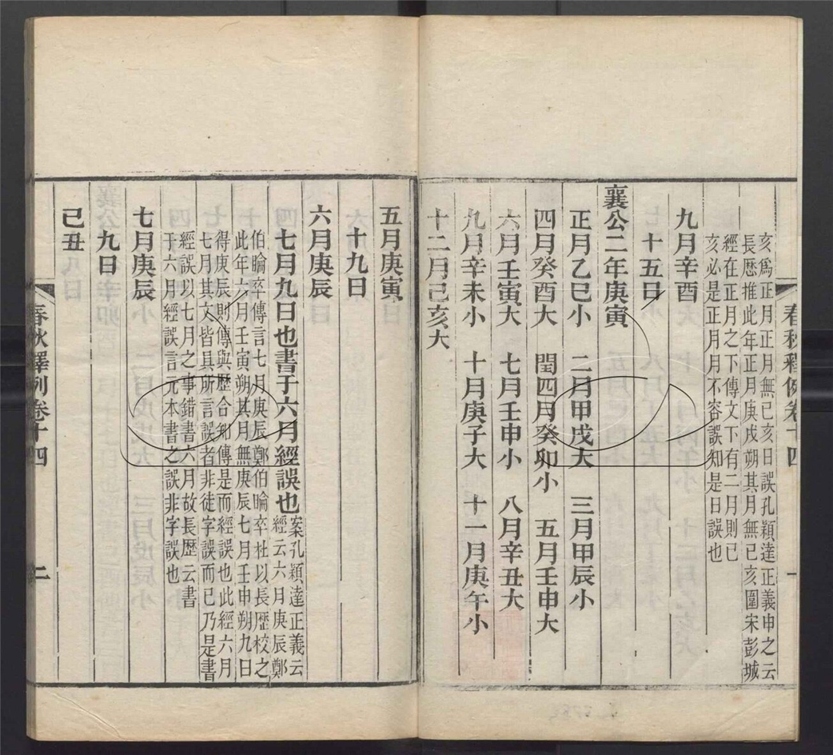 春秋釋例卷十四
一
亥為正月正月無己亥日誤孔穎達正義申之云
長歷推此年正月庚戌朔其月無己亥圍宋彭城
經在正月之下傳文下有二月則己
亥必是正月月不容誤知是日誤也
九月辛酉
十五日
襄公二年庚寅
正月乙巳小 二月甲戌大 三月甲辰小
四月癸酉大 閏四月癸卯小 五月壬申大
六月壬寅大 七月壬申小 八月辛丑大
九月辛未小 十月庚子大 十一月庚午小
十二月己亥大
五月庚寅
十九日
六月庚辰
七月九日也書于六月經誤也 案孔穎達正義云
經云六月庚辰鄭
伯睔卒傳言七月庚辰鄭伯睔卒杜以長歷校之
此年六月壬寅朔其月無庚辰七月壬申朔九日
得庚辰則傳與歷合知傳是而經誤也此經六月
七月其文皆具所言誤者非徒字誤而已乃是書
經誤以七月之事錯書六月故長歷云書
于六月經誤言元本書之誤非字誤也
七月庚辰
九日
己丑
春秋釋例卷十四
二